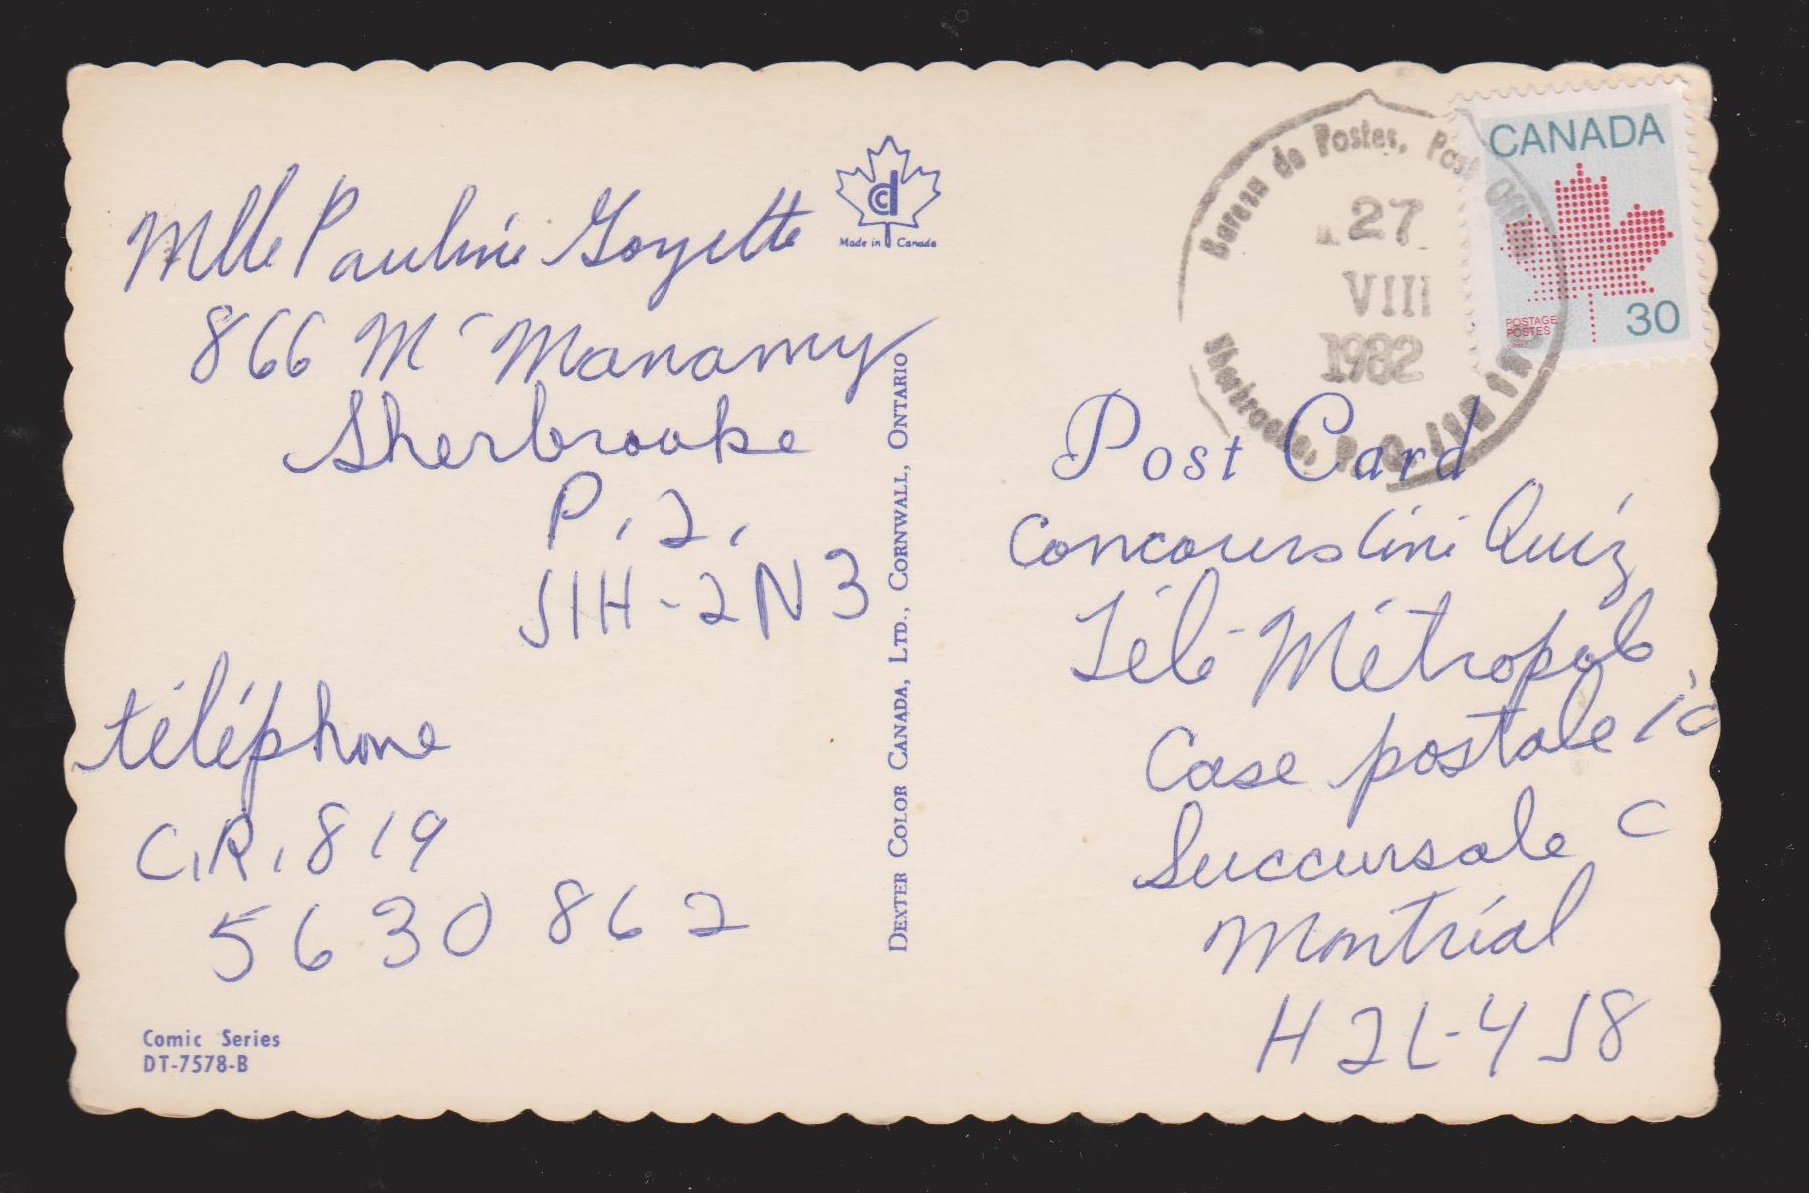 Mlle Pauline Goyette
866 Mc Manamy
Sherbrooke
P. Q.
J1H-2N3
téléphone
C.R. 819
5630862
Comic Series
DT-7578-B
cd
Made in Canada
DEXTER COLOR CANADA, LTD., CORNWALL, ONTARIO
Bureau de Postes, Post Office
27
VIII
1982
Sherbrooke, P.Q.
CANADA
POSTAGE
POSTES
30
Post Card
Concours Ciné Quiz
Télé-Métropole
Case postale 10
Succursale C
Montréal
H2L-4J8